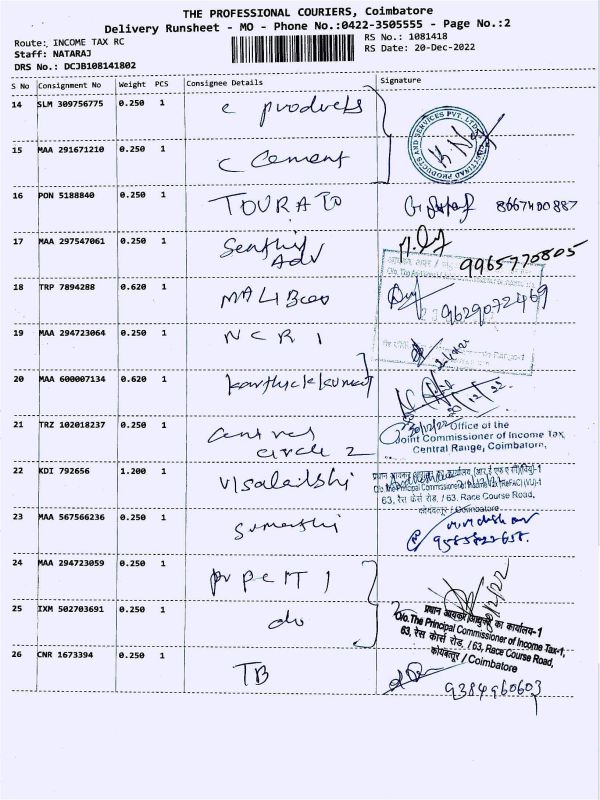 THE PROFESSIONAL COURIERS, Coimbatore
Delivery Runsheet - MO - Phone No.:0422-3505555 - Page No.:2
Route: INCOME TAX RC
RS No.: 1081418
Staff: NATARAJ
RS Date: 20-Dec-2022
DRS No.: DCJB108141802
S No Consignment No Weight PCS Consignee Details Signature
14 SLM 309756775 0.250 1 c products
15 MAA 291671210 0.250 1 c cement
16 PON 5188840 0.250 1 8667400887
17 MAA 297547061 0.250 1 Senthil Adv 9965770805
18 TRP 7894288 0.620 1 9629072469
19 MAA 294723064 0.250 1 NCR 1
20 MAA 600007134 0.620 1 karthick kumar
21 TRZ 102018237 0.250 1 central circle 2
Office of the
Joint Commissioner of Income Tax,
Central Range, Coimbatore.
22 KDI 792656 1.200 1 Visalakshi
63, रेस कोर्स रोड, / 63, Race Course Road,
कोयंबटूर / Coimbatore
23 MAA 567566236 0.250 1
24 MAA 294723059 0.250 1
25 IXM 502703691 0.250 1 do
प्रधान आयकर आयुक्त का कार्यालय-1
O/o. The Principal Commissioner of Income Tax-1,
63, रेस कोर्स रोड, / 63, Race Course Road,
कोयंबटूर / Coimbatore
26 CNR 1673394 0.250 1 TB 9384960603